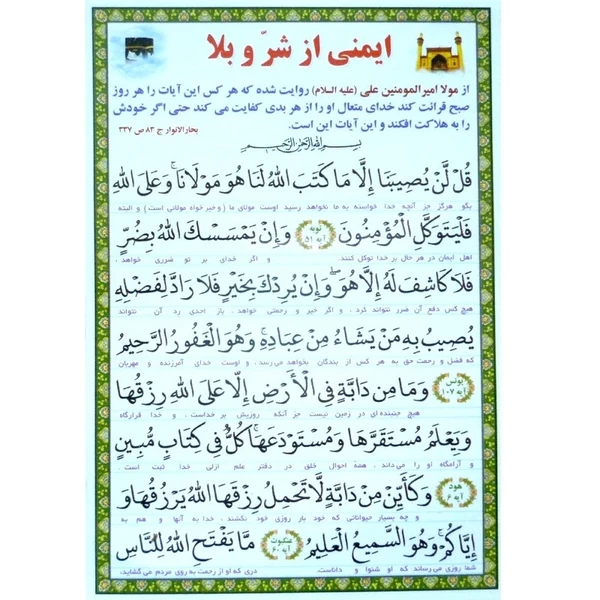 ایمنی از شرّ و بلا
از مولا امیرالمومنین علی (علیه السلام) روایت شده که هر کس این آیات را هر روز
صبح قرائت کند خدای متعال او را از هر بدی کفایت می کند حتی اگر خودش
را به هلاکت افکند و این آیات این است.
بحارالانوار ج ۸۳ ص ۳۳۷
بسم الله الرحمن الرحیم
قُلْ لَنْ يُصِيبَنَا إِلَّا مَا كَتَبَ اللهُ لَنَا هُوَ مَوْلَانَا وَعَلَى اللهِ
بگو هرگز جز آنچه خدا خواسته به ما نخواهد رسید اوست مولای ما (و خیر خواه مولائی است) و البته
فَلْيَتَوَكَّلِ الْمُؤْمِنُونَ توبه آیه ۵۱ وَإِنْ يَمْسَسْكَ اللهُ بِضُرٍّ
اهل ایمان در هر حال بر خدا توکل کنند. و اگر خدا بر تو ضرری خواهد،
فَلَا كَاشِفَ لَهُ إِلَّا هُوَ وَإِنْ يُرِدْكَ بِخَيْرٍ فَلَا رَادَّ لِفَضْلِهِ
هیچ کس دفع آن ضرر نتواند کرد، و اگر خیر و رحمتی خواهد، باز احدی رد آن نتواند
يُصِيبُ بِهِ مَنْ يَشَاءُ مِنْ عِبَادِهِ وَهُوَ الْغَفُورُ الرَّحِيمُ
که فضل و رحمت حق به هر کس از بندگان بخواهد می رسد، و اوست خدای آمرزنده و مهربان
یونس آیه ۱۰۷ وَمَا مِنْ دَابَّةٍ فِي الْأَرْضِ إِلَّا عَلَى اللهِ رِزْقُهَا
هیچ جنبنده ای در زمین نیست جز آنکه روزیش بر خداست، و خدا قرارگاه
وَيَعْلَمُ مُسْتَقَرَّهَا وَمُسْتَوْدَعَهَا كُلٌّ فِي كِتَابٍ مُبِينٍ
و آرامگاه او را می داند، همه احوال خلق در دفتر علم ازلی خدا ثبت است.
هود آیه ۶ وَكَأَيِّنْ مِنْ دَابَّةٍ لَا تَحْمِلُ رِزْقَهَا اللهُ يَرْزُقُهَا وَ
و چه بسیار حیواناتی که خود بار روزی خود نکشند، خدا به آنها و هم به
إِيَّاكُمْ وَهُوَ السَّمِيعُ الْعَلِيمُ عنکبوت آیه ۶۰ مَا يَفْتَحِ اللهُ لِلنَّاسِ
شما روزی می رساند که او شنوا و داناست. دری که او از رحمت به روی مردم می گشاید،